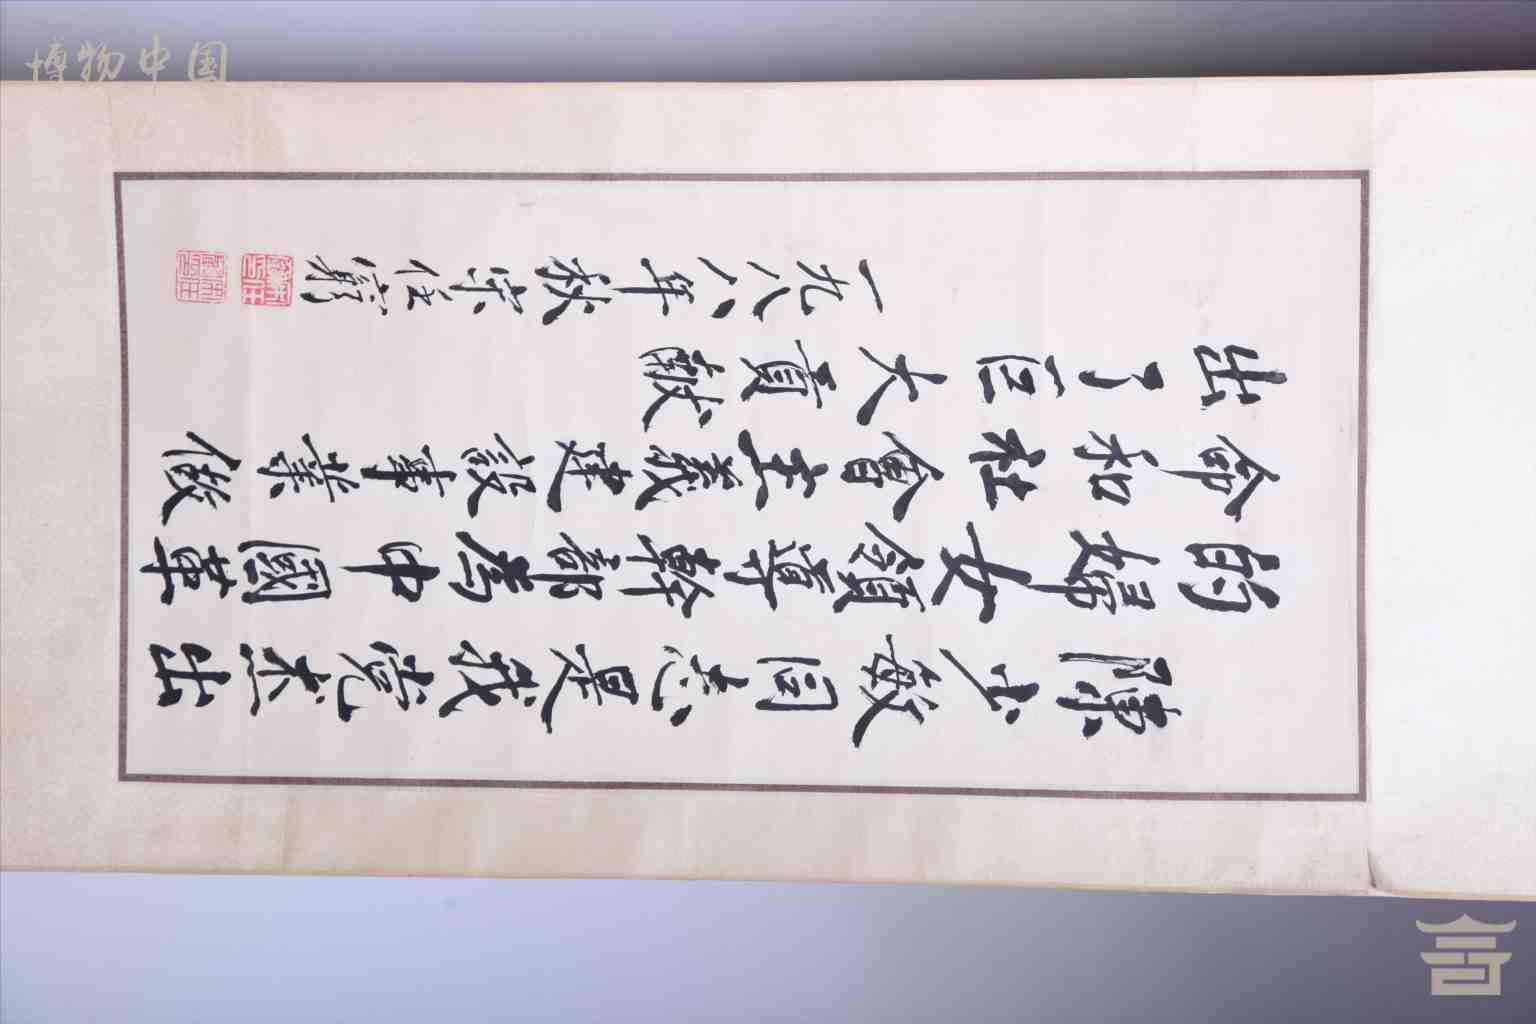 博物中国
陳少敏同志是我党杰出
的婦女領導幹部為中國革
命和社會主義建設事業做
出了巨大貢獻
一九八八年秋宋任窮